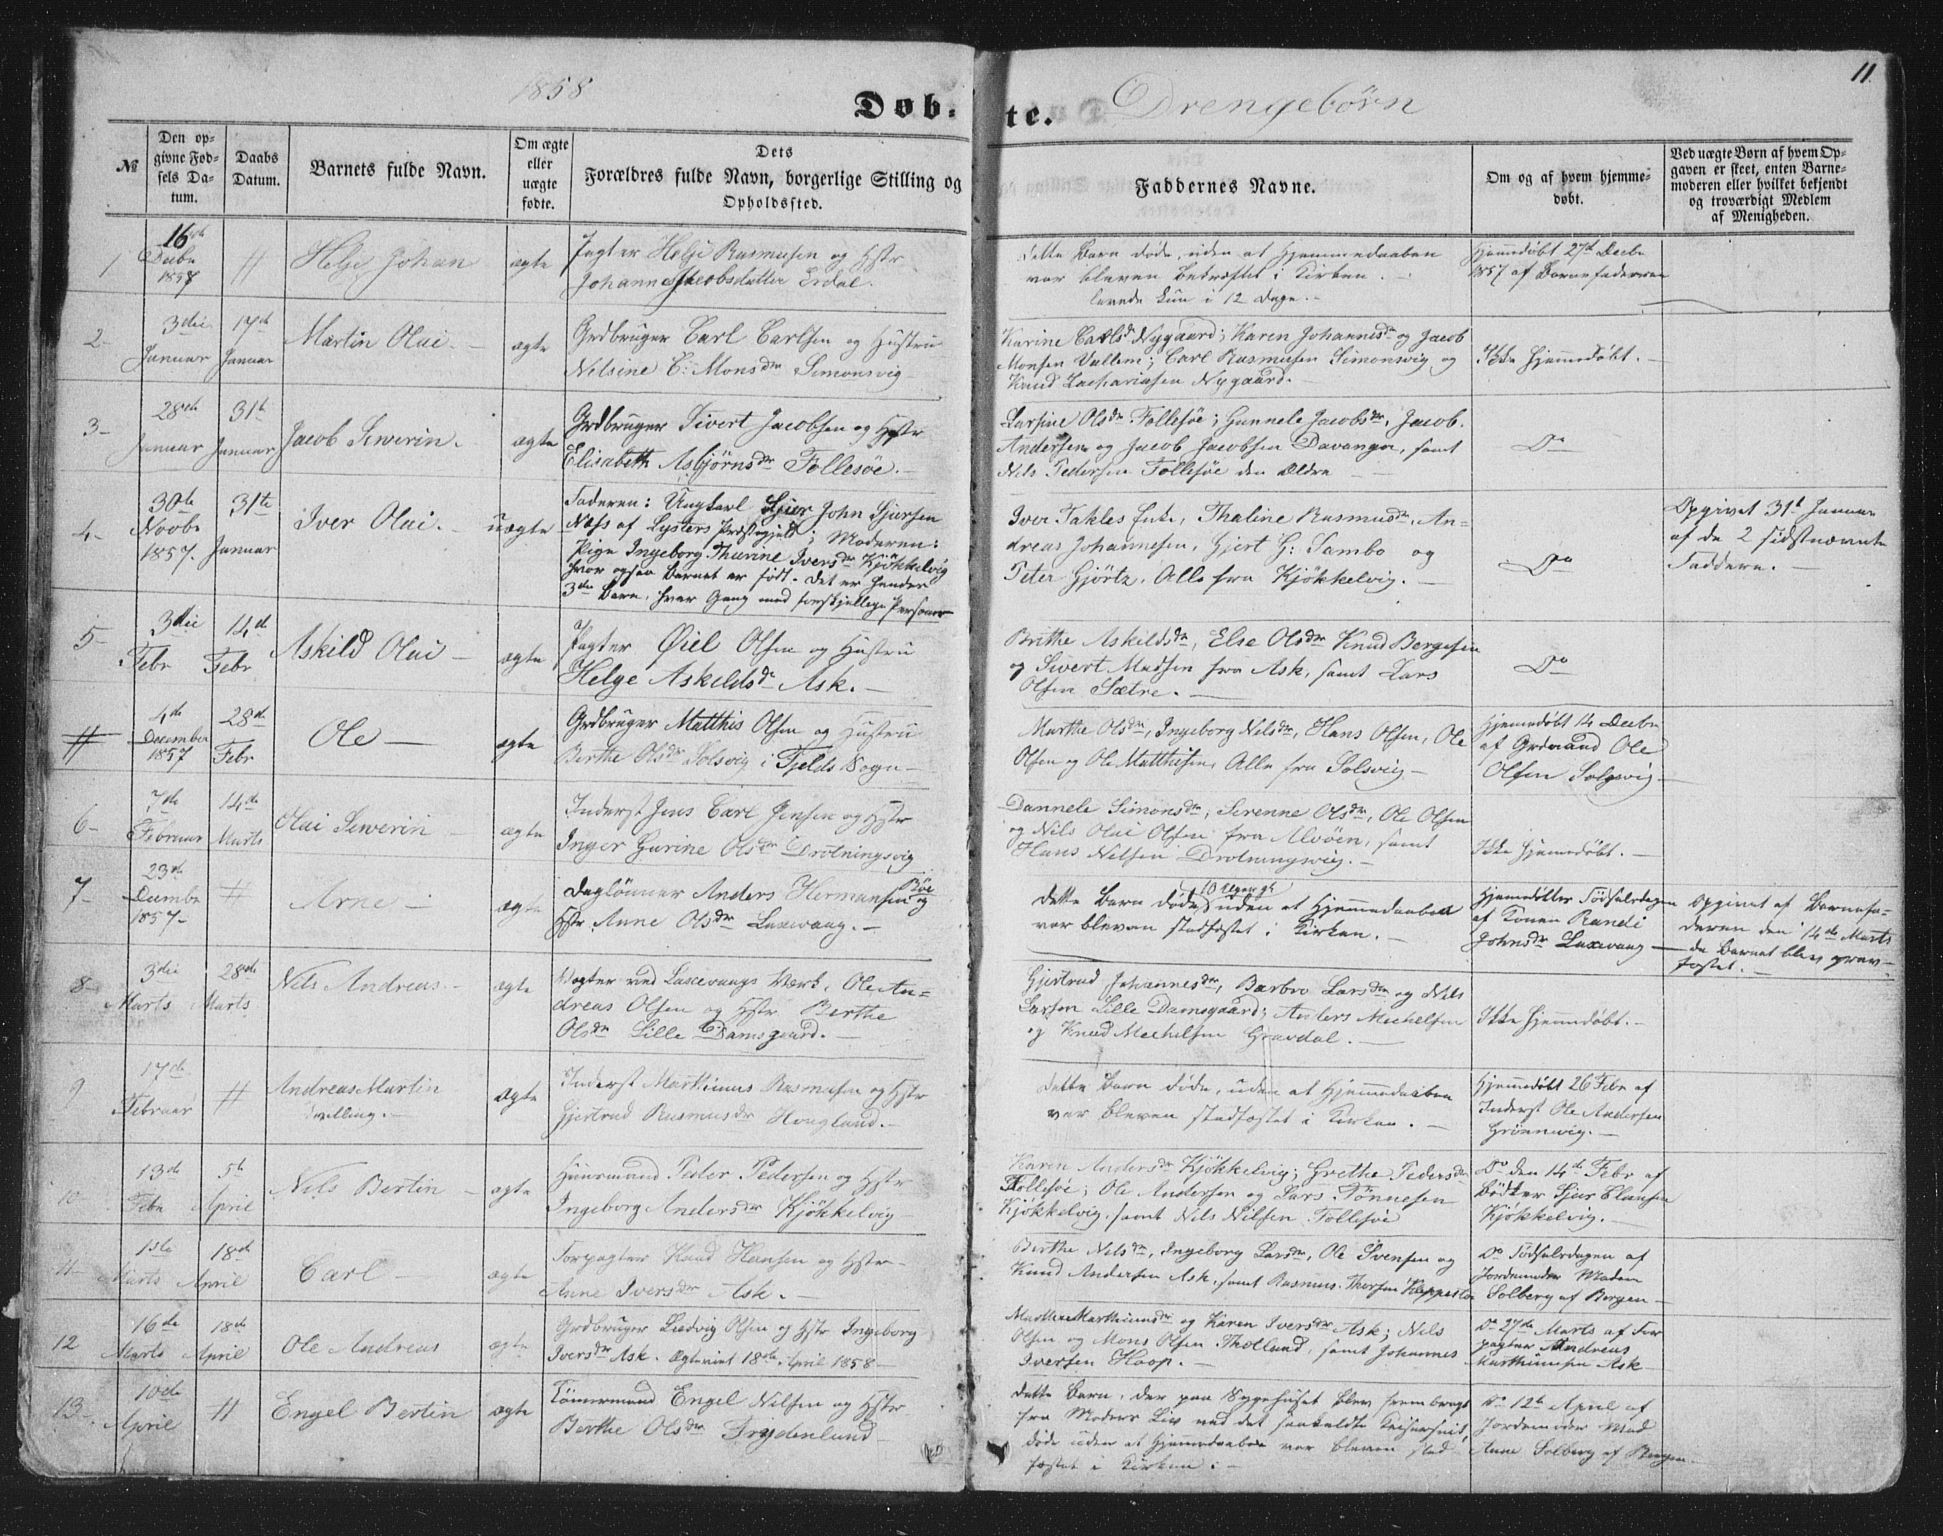 11
1858
Dob-te. Drengebørn
№
Den op-
givne Fød-
sels Da-
tum.
Daabs
Datum.
Barnets fulde Navn.
Om ægte
eller
uægte
fødte.
Dets
Forældres fulde Navn, borgerlige Stilling og
Opholdssted.
Faddernes Navne.
Om og af hvem hjemme-
døbt.
Ved uægte Børn af hvem Op-
gaven er skeet, enten Barne-
moderen eller hvilket bekjendt
og troværdigt Medlem
af Menigheden.
1
16de
Decbr
1857
#
Helje Johan
ægte
Pagter Helje Rasmusen og Hstr
Johanne Jacobsdatter
Dette Barn døde, uden at Hjemmedaaben
var bleven bekræftet i Kirken.
levede kun i 12 Dage.
Hjemdøbt 27d Decbr
1857 af Barnefaderen
2-
3die
Januar
17de
Januar
Martin Olai. -
ægte
Grdbruger Carl Carlsen og Hustru
Nilsine C: Monsdr Simonsvig
Karine Carlsdr Nygaard; Karen Johannesdr og Jacob
Monsen Vallem; Carl Rasmusen Simonsvig og
Knud Zachariasen Nygaard.
Ikke Hjemmedøbt. -
3-
28de
Januar
31te
Januar
Jacob Severin.
ægte
Grdbruger Sivert Jacobsen og Hstr
Elisabeth Asbjørnsdr Follesøe. -
Larsine Olsdr Follesøe; Gunnele Jacobsdr, Jacob
Andersen og Jacob Jacobsen Davanger, samt
Nils Pedersen Follesøe den Ældre
Do
4-
30te
Novbr
1857.
31te
Januar
Iver Olai. -
uægte
Faderen: Ungkarl John Sjursen
Næss af Lysters Præstegjeld; Moderen:
Pige Ingeborg Thurine Iversdr Kjøkkelvig
hvor ogsaa Barnet er født. Det er hendes
3de Barn, hver Gang med forskjellige Personer
Iver Takles Enke, Thaline Rasmusdr, An-
dreas Johannesen, Gjert G: Tambo og
Peter Gjørtz. Alle fra Kjøkkelvig. -
Do
Opgivet 31te Januar
af de 2 sidstnævnte
Faddere. -
5-
3die
Febr
14de
Febr
Askild Olai -
ægte
Pagter Øiel Olsen og Hustru
Helge Askildsdr Ask. -
Brithe Askildsdr, Else Olsdr Knud Bergesen
og Sivert Madsen fra Ask, samt Lars
Olsen Sætre. -
Do
#
4de
December
1857
28de
Febr
Ole -
ægte
Grdbruger Matthis Olsen og Hustru
Berthe Olsdr Solsvig i Fjelds Sogn -
Marthe Olsdr, Ingeborg Nilsdr, Hans Olsen, Ole
Olsen og Ole Matthisen, Alle fra Solsvig -
Hjemmedøbt 14 Decbr
af Grdmand Ole
Olsen Solsvig -
6-
7de
Februar
14de
Marts
Olai Severin -
ægte
Inderst Jens Carl Jensen og Hstr
Inger Gurine Olsdr Drotningsvig
Dannele Simonsdr, Serenne Olsdr, Ole Olsen
og Nils Olai Olsen fra Alvøen, samt
Hans Nilsen Drotningsvig. -
Ikke Hjemmedøbt. -
7-
23de
Decembr
1857-
#
Arne -
ægte
Daglønner Anders Hermansen Bøe og
Hstr Anne Olsdr Laxevaag. -
Dette Barn døde uden at Hjemmedaaben
var bleven stadfæstet i Kirken. -
Hjemmedøbt Fødselsdagen
af Konen Randi
Johnsdr Laxevaag -
Opgivet af Barnefa-
deren den 14de Marts
da Barnet blev grav-
fæstet. -
8-
3die
Marts
28de
Marts
Nils Andreas. -
ægte
Vagter ved Laxevaags Værk, Ole An-
dreas Olsen og Hstr Berthe
Olsdr Lille Damsgaard. -
Gjertrud Johannesdr, Barbro Larsdr og Nils
Larsen Lille Damsgaard; Anders Mechelsen
og Knud Mechelsen Gravdal. -
Ikke Hjemmedøbt. -
9
17de
Februar
#
Andreas Martin
Tvilling. -
ægte
Inderst Marthinus Rasmusen og Hstr
Gjertrud Rasmusdr Hougland. -
Dette Barn døde, uden at Hjemmedaaben
var bleven stadfæstet i Kirken. -
Hjemmedøbt 26 Febr af
Inderst Ole Andersen
Grønnevig. -
10
13de
Febr
5te
April
Nils Bertin -
ægte
Huusmand Peder Pedersen og Hstr
Ingeborg Andersdr Kjøkkelvig
Karen Andersdr Kjøkkelvig; Grethe Pedersdr
Follesøe; Ole Andersen og Lars Tønnesen
Kjøkkelvig, samt Nils Nilsen Follesøe
Do den 14de Febr af
Bødker Sjur Clausen
Kjøkkelvig. -
11
1ste
Marts
18de
April
Carl -
ægte
Forpagter Knud Hansen og Hstr
Anne Iversdr Ask. -
Berthe Nilsdr, Ingeborg Larsdr, Ole Svensen og
Knud Andersen Ask, samt Rasmus Thorsen Kleppestø
Do Fødselsdagen af
Jordemoder Madam
Solberg af Bergen -
12
16de
Marts
18de
April
Ole Andreas
ægte
Grdbruger Ludvig Olsen og Hstr Ingeborg
Iversdr Ask. Ægteviet 18de April 1858
Marthinusdr og Karen Iversdr Ask; Nils
Olsen og Mons Olsen Tholland, samt Johannes
Iversen Hoop. -
Do 27de Marts af For
pagter Andreas
Marthinusen Ask
13-
10de
April
#
Engel Bertin
ægte
Tømmermand Engel Nilsen og Hstr
Berthe Olsdr Frydenlund
Dette Barn, der paa Sygehuset blev frembragt
fra Moders Liv ved det saakaldte Keisersnit,
døde uden at Hjemmedaaben var bleven stad
fæstet i Kirken. -
Do 12te April af
Jordemoder Mad
Anne Solberg af Bergen -